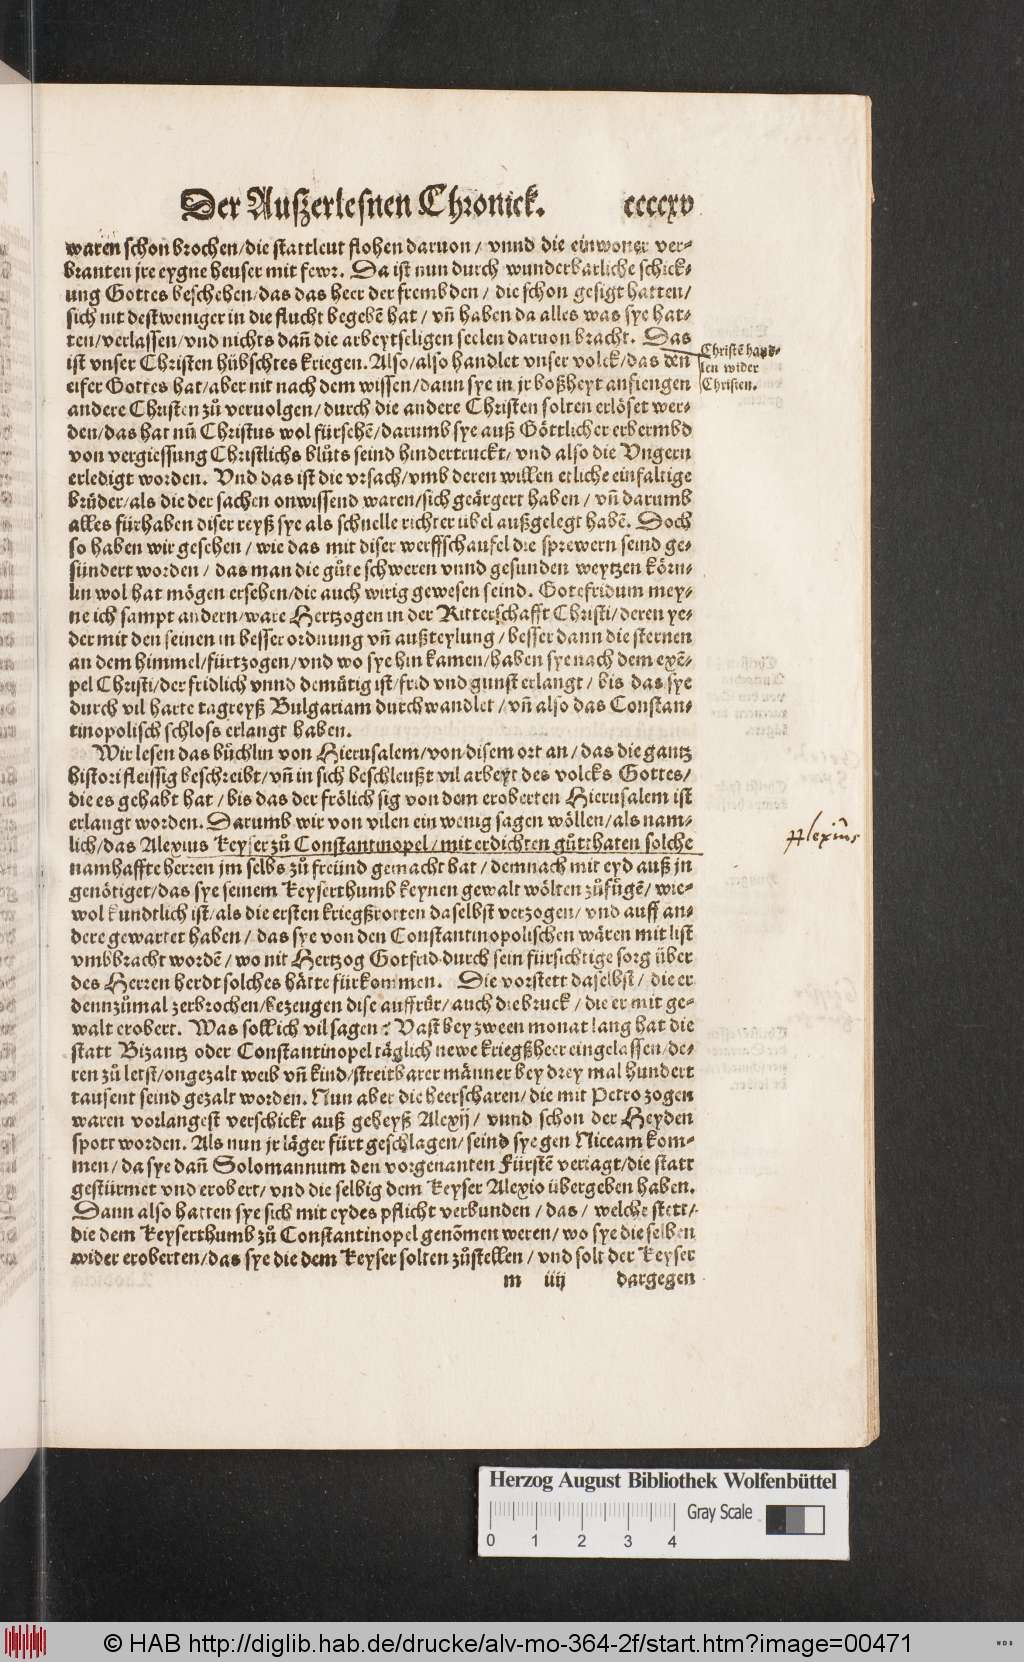 Der Außzerlesnen Chronick. ccccxv
waren schon brochen/die stattleut flohen daruon/ vnnd die einwoner ver-
branten jre eygne heuser mit fewr. Da ist nun durch wunderbarliche schick-
ung Gottes beschehen/das das heer der frembden/ die schon gesigt hatten/
sich nit destweniger in die flucht begebē hat/ vn̄ haben da alles was sye hat-
ten/verlassen/vnd nichts dan̄ die arbeytseligen seelen daruon bracht. Das
ist vnser Christen hübschtes kriegen. Also/also handlet vnser volck/das den
eifer Gottes hat/aber nit nach dem wissen/dann sye in jr boßheyt anfiengen
andere Christen zů veruolgen/durch die andere Christen solten erlöset wer-
den/das hat nū Christus wol fürsehē/darumb sye auß Göttlicher erbermbd
von vergiessung Christlichs blůts seind hindertruckt/ vnd also die Vngern
erledigt worden. Vnd das ist die vrsach/vmb deren willen etliche einfaltige
brüder/als die der sachen onwissend waren/sich geärgert haben/ vn̄ darumb
alles fürhaben diser reyß sye als schnelle richter übel außgelegt habē. Doch
so haben wir gesehen/ wie das mit diser werffschaufel die sprewern seind ge-
sündert worden/ das man die gůte schweren vnnd gesunden weytzen körn-
lin wol hat mögen ersehen/die auch wirig gewesen seind. Gotefridum mey-
ne ich sampt andern/ware Hertzogen in der Ritterschafft Christi/deren ye-
der mit den seinen in besser ordnung vn̄ außteylung/ besser dann die sternen
an dem himmel/fürtzogen/vnd wo sye hin kamen/haben sye nach dem exē-
pel Christi/der fridlich vnnd demütig ist/frid vnd gunst erlangt/ bis das sye
durch vil harte tagreyß Bulgariam durchwandlet/vn̄ also das Constan-
tinopolisch schloss erlangt haben.
Wir lesen das büchlin von Hierusalem/von disem ort an/das die gantz
histori fleissig beschreibt/vn̄ in sich beschleußt vil arbeyt des volcks Gottes/
die es gehabt hat/ bis das der frölich sig von dem eroberten Hierusalem ist
erlangt worden. Darumb wir von vilen ein wenig sagen wöllen/als nam-
lich/das Alexius Keyser zů Constantinopel/mit erdichten gůtthaten solche
namhaffte herren jm selbs zů freünd gemacht hat/ demnach mit eyd auß jn
genötiget/das sye seinem Keyserthumb keynen gewalt wölten zůfügē/ wie-
wol kundtlich ist/als die ersten kriegßrotten daselbst vertzogen/ vnd auff an-
dere gewartet haben/ das sye von den Constantinopolischen wären mit list
vmbbracht wordē/wo nit Hertzog Gotfrid durch sein fürsichtige sorg über
des Herren herdt solches hätte fürkommen. Die vorstett daselbst/ die er
dennzůmal zerbrochen/bezeugen dise auffrůr/auch die bruck/die er mit ge-
walt erobert. Was soll ich vil sagen? Vast bey zween monat lang hat die
statt Bizantz oder Constantinopel täglich newe kriegßheer eingelassen/de-
ren zů letst/ongezalt weib vn̄ kind/streitbarer männer bey drey mal hundert
tausent seind gezalt worden. Nun aber die heerscharen/die mit Petro zogen
waren vorlangest verschickt auß geheyß Alexij/ vnnd schon der Heyden
spott worden. Als nun jr läger fürt geschlagen/seind sye gen Niceam kom-
men/da sye dan̄ Solomannum den vorgenanten Fürstē veriagt/die statt
gestürmet vnd erobert/vnd die selbig dem Keyser Alexio übergeben haben.
Dann also hatten sye sich mit eydes pflicht verbunden/das/ welche stett/
die dem Keyserthumb zů Constantinopel genōmen weren/wo sye die selben
wider eroberten/das sye die dem Keyser solten zůstellen/ vnd solt der Keyser
m iiij dargegen
Christē hand-
len wider
Christen.
Alexius
Herzog August Bibliothek Wolfenbüttel
Gray Scale
0 1 2 3 4
© HAB http://diglib.hab.de/drucke/alv-mo-364-2f/start.htm?image=00471